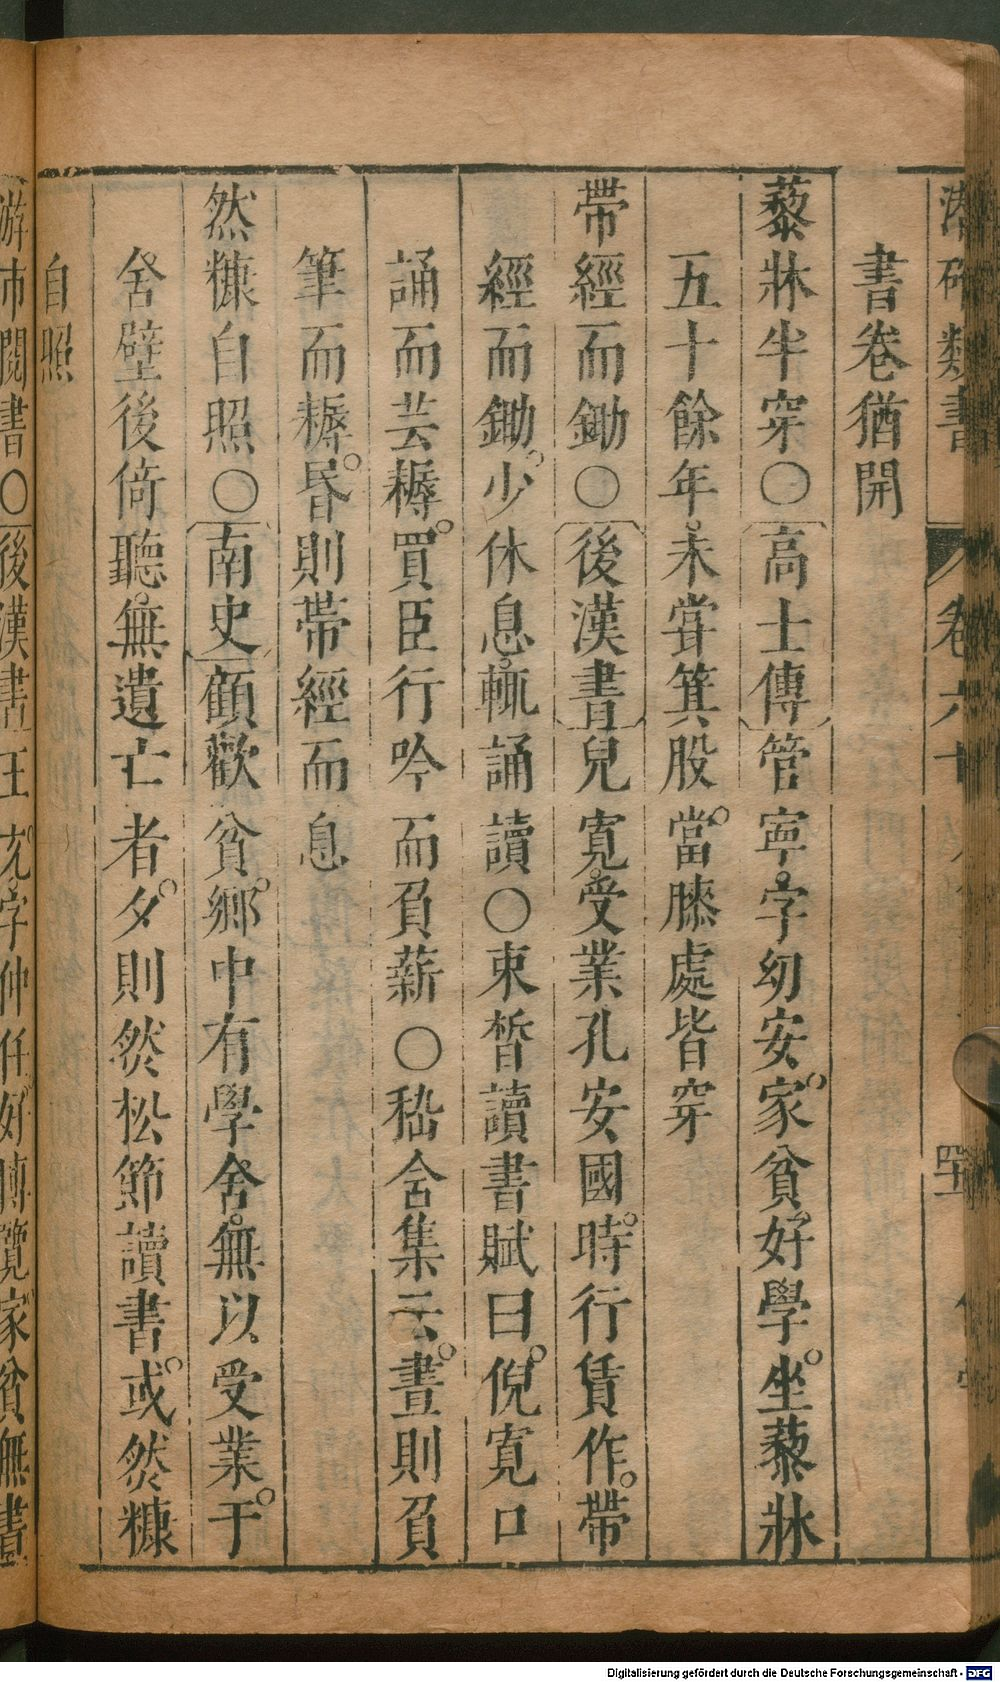 類書 卷六十
書卷猶開
藜牀半穿〇高士傳管寧字幼安家貧好學坐藜牀
五十餘年未甞箕股當膝處皆穿
帶經而鋤〇後漢書兒寬受業孔安國時行賃作帶
經而鋤少休息輒誦讀〇束晳讀書賦曰倪寬口
誦而芸耨買臣行吟而負薪〇嵇含集云晝則負
筆而耨昏則帶經而息
然糠自照〇南史顧歡貧鄉中有學舍無以受業于
舍壁後倚聽無遺亡者夕則然松節讀書或然糠
自照
游市閱書〇後漢書王充字仲任好博覽家貧無書
Digitalisierung gefördert durch die Deutsche Forschungsgemeinschaft - DFG